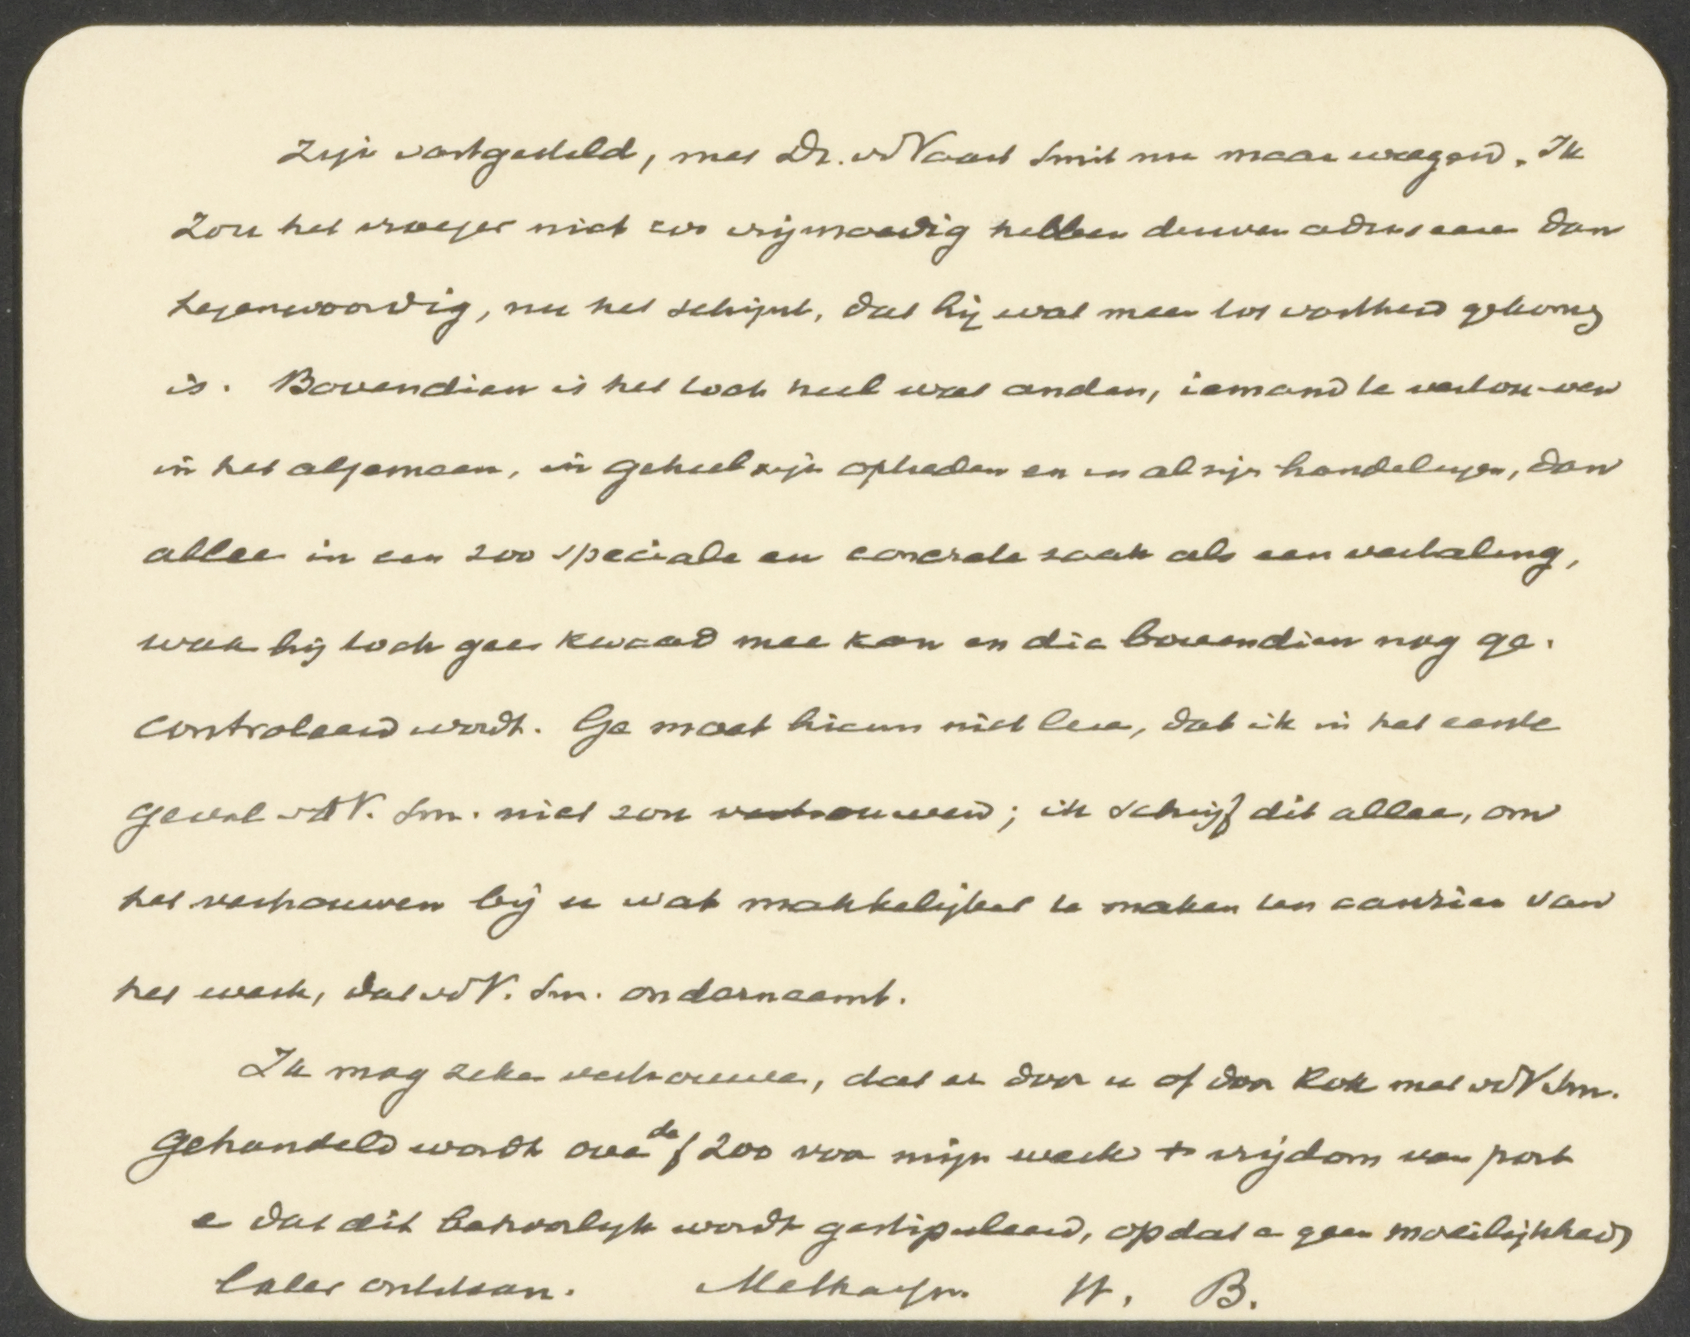 zijn vastgesteld, met Dr. vdVaart Smit nu maar wagen. Ik
zou het vroeger niet zoo vrijmoedig hebben durven adviseeren dan
tegenwoordig, nu het schijnt, dat hij wat meer tot vastheid gekomen
is. Bovendien is het toch heel wat anders, iemand te vertrouwen
in het algemeen, in geheel zijn optreden en in al zijn handelingen, dan
alleen in een zoo speciale en concrete zaak als een vertaling,
waar hij toch geen kwaad mee kan en die bovendien nog ge-
controleerd wordt. Ge moet hierin niet lezen, dat ik in het eerste
geval vdV. Sm. niet zou vertrouwen; ik schrijf dit alleen, om
het vertrouwen bij u wat makkelijker te maken ten aanzien van
het werk, dat vdV. Sm. onderneemt.
Ik mag zeker vertrouwen, dat er door u of door Kok met vdV Sm.
gehandeld wordt over de f 200 voor mijn werk + vrijdom van port
en dat dit behoorlijk wordt gestipuleerd, opdat er geen moeilijkheden
later ontstaan. Met hartegr. H. B.